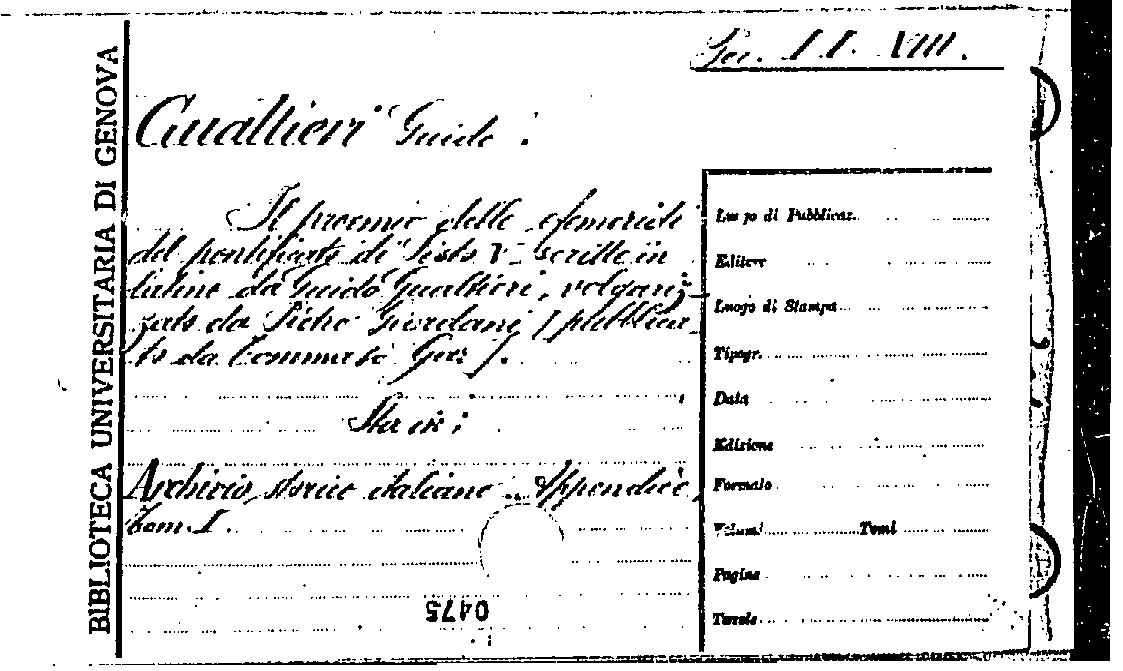 BIBLIOTECA UNIVERSITARIA DI GENOVA
Per. I. I. VIII.
Gualtieri Guido :
Il proemio delle efemeridi
del pontificato di Sisto V scritte in
latino da Guido Gualtieri, volgariz-
zato da Pietro Giordani [pubblica-
to da Tommaso Gar].
Sta in :
Archivio storico italiano .. Appendice,
tom. I.
0475
Luogo di Pubblicaz.
Editore
Luogo di Stampa
Tipogr.
Data
Edizione
Formato
Volumi Tomi
Pagine
Tavole